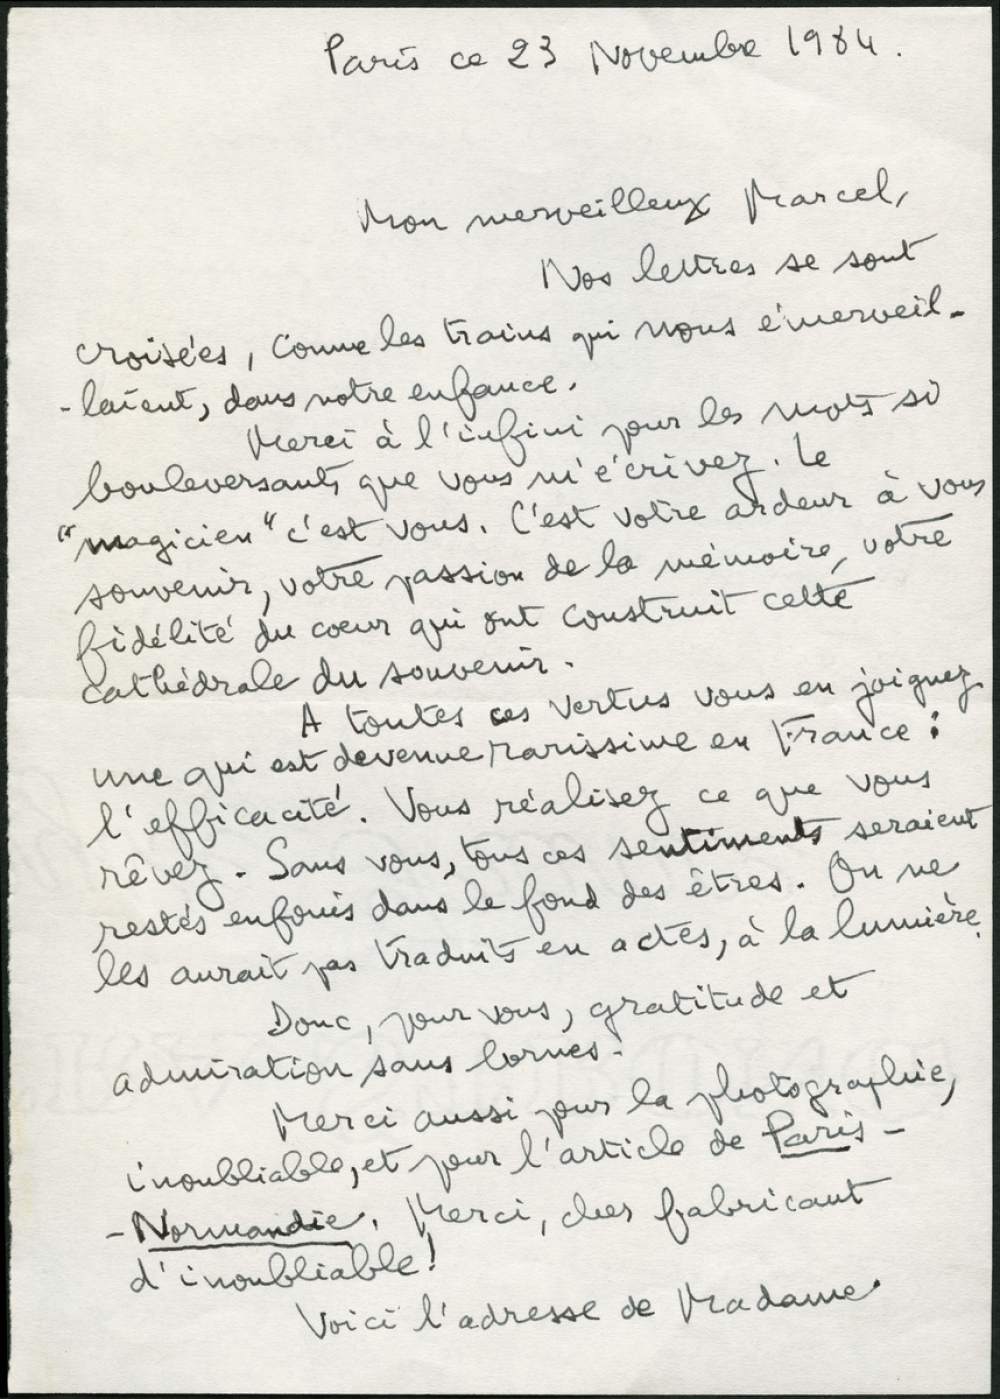 Paris ce 23 Novembre 1984.
Mon merveilleux Marcel,
Nos lettres se sont
croisées, comme les trains qui nous émerveil-
-laient, dans notre enfance.
Merci à l'infini pour les mots si
bouleversants que vous m'écrivez. Le
"magicien" c'est vous. C'est votre ardeur à vous
souvenir, votre passion de la mémoire, votre
fidélité du coeur qui ont construit cette
cathédrale du souvenir.
A toutes ces vertus vous en joignez
une qui est devenue rarissime en France :
l'efficacité. Vous réalisez ce que vous
rêvez. Sans vous, tous ces sentiments seraient
restés enfouis dans le fond des êtres. On ne
les aurait pas traduits en actes, à la lumière.
Donc, pour vous, gratitude et
admiration sans bornes.
Merci aussi pour la photographie,
inoubliable, et pour l'article de Paris-
-Normandie. Merci, cher fabricant
d'inoubliable!
Voici l'adresse de Madame